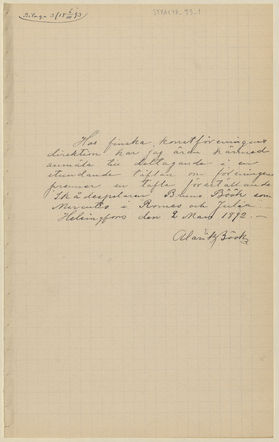 Bilaga 3/18 5/3 93
Hos finska konstföreningens
direktion har jag äran härmed
anmäla till deltagande i en
stundande täflan om föreningens
premier en tafla föreställande
Skådespelaren Bruno Böök som
Mercutio i Romeo och Julia.
Helsingfors den 2 Mars 1892.—
Alarik Böök